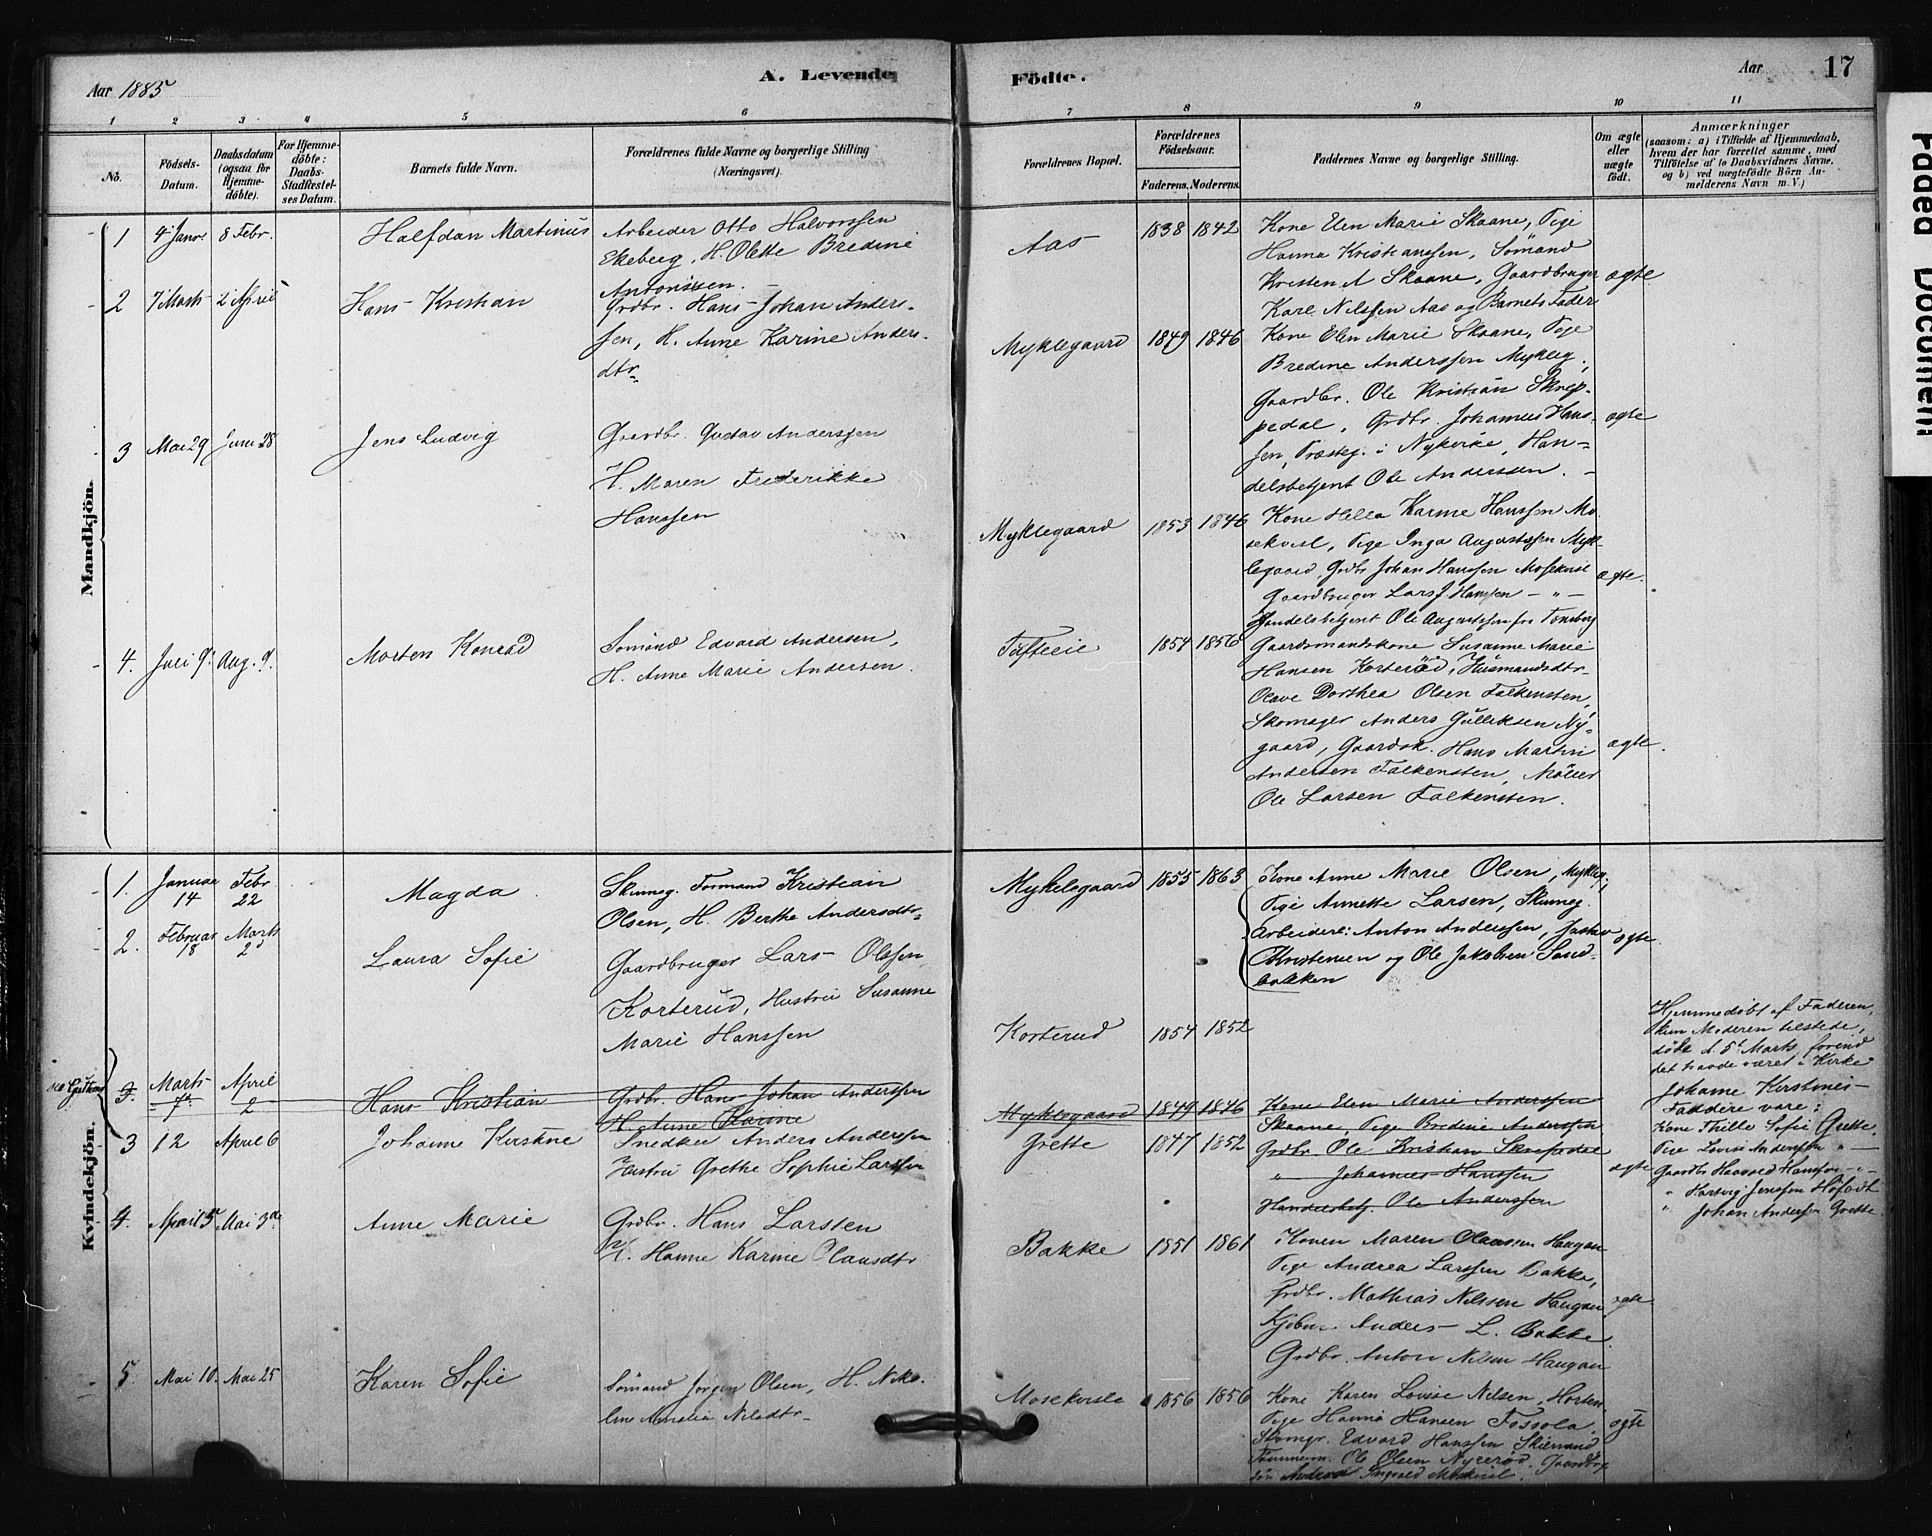 Aar 1885
A. Levende
Fødte.
Aar
17
1 2 3 4 5 6 7 8 9 10 11
No.
Fødsels-
Datum.
Daabsdatum
(ogsaa for
Hjemme-
døbte).
For Hjemme-
døbte:
Daabs-
Stadfæstel-
ses Datum.
Barnets fulde Navn.
Forældrenes fulde Navne og borgerlige Stilling
(Næringsvei).
Forældrenes Bopæl.
Forældrenes
Fødselsaar.
Faderens. Moderens.
Faddernes Navne og borgerlige Stilling.
Om ægte
eller
uægte
født.
Anmærkninger
(saasom: a) i Tilfælde af Hjemmedaab,
hvem der har forrettet samme, med
Tilføielse af to Daabsvidners Navne,
og b) ved uægtefødte Børn An-
melderens Navn m. V.)
Mandkjön.
1 4 Janr. 8 Febr.
Halfdan Martinius
Arbeider Otto Halvorssen
Ekeberg, H. Olette Bredine
Antonissen.
Aas
1838 1842
Kone Elen Marie Skaane, Pige
Hanna Kristianssen, Sömand
Kristen A Skaane, Gaardbruger
Karl Nilssen Aas og Barnets Fader
ægte
2 7 Marts 2 April
Hans Kristian
Grdbr. Hans Johan Anders-
sen, H. Anne Karine Anders-
dtr
Myklegaard
1849 1846
Kone Elen Marie Skaane, Pige
Bredine Anderssen Mykleg.,
Gaardbr. Ole Kristian Skrep-
pedal, Grdbr. Johannes Hans-
sen, Præsteg. i Nykirke, Han-
delsbetjent Ole Anderssen.
ægte
3 Mai 29 Juni 28
Jens Ludvig
Gaardbr. Gustav Anderssen
H. Maren Frederikke
Hanssen
Myklegaard
1853 1846
Kone Hella Karine Hanssen Mo
sekvisl, Pige Inga Augustassen Myk-
legaard Grdbr Johan Hanssen Mosekvisl
Gaardbruger Lars J Hanssen - " -
Handelsbetjent Ole Augustassen fra Tønsberg
ægte.
4. Juli 9. Aug. 9.
Morten Konrad
Sömand Edvard Andersen,
H. Anne Marie Andersen.
Tufteeie
1854 1856
Gaardsmandskone Susanne Marie
Hansen Korteröd, Husmandsdtr
Olave Dorthea Olsen Falkensten,
Skomager Anders Gulliksen Ny-
gaard, Gaardsk. Hans Martin
Andersen Falkensten, Möller
Ole Larsen Falkensten.
ægte.
Kvindekjön.
1. Januar
14
Febr
22
Magda
Skinneg. Formand Kristian
Olsen, H. Berthe Andersdtr
Myklegaard
1855 1863
Kone Anne Marie Olsen, Mykleg.,
Pige Annette Larsen, Skinneg.
Arbeidere: Anton Anderssen, Gustav
Christensen og Ole Jakobsen Sand-
bakken
ægte.
2. Februar
18
Marts
2
Laura Sofie
Gaardbruger Lars Olssen
Korterud, Hustru Susanne
Marie Hanssen
Korterud
1854 1852
Hjemmedøbt af Faderen,
kun Moderen tilstede,
døde d. 5t Marts forend
det havde været i Kirke
3. Marts
7de
April
2
Hans Kristian
Grdbr. Hans Johan Anderssen
H. Anne Karine
Myklegaard
1849 1846
Kone Elen Marie Anderssen
Skaane, Pige Bredine Anderssen
Grdbr Ole Kristian Skrepedal
" Johannes Hanssen
Handelsbetj. Ole Anderssen
3 12 April 6
Johanne Kirstine
Snedker Anders Anderssen
Hustru Grethe Sophie Larssen
Grette
1847 1852
ægte
Johanne Kirstines
Faddere vare:
Kone Thille Sofie Grette
Pige Lovise Anderssen " -
Gaardbr Haavald Hanssen - " -
" Hartvig Jenssen Höfodt
" Johan Anderssen Grette
4. April 5 Mai 3de
Anne Marie
Grdbr. Hans Larsten
H. Hanne Karine Olausdtr
Bakke
1851 1861
Konen Maren Olaussen Haugan
Pige Andrea Larssen Bakke,
Grdbr. Mathias Nilssen Haugan,
Anders L. Bakke
Grdbr. Anton Nilsen Haugan
ægte
5. Mai 10. Mai 25
Karen Sofie
Sömand Jørgen Olsen, H. Niko-
line Amalie Nilsdtr.
Mosekvisle
1856 1856
Kone Karen Lovise Nilsen, Horten
Pige Hanna Hansen Fossola.
Skomgr. Edvard Hanssen Skiensund,
Tømmerm. Ole Olsen Nyreröd.
ægte